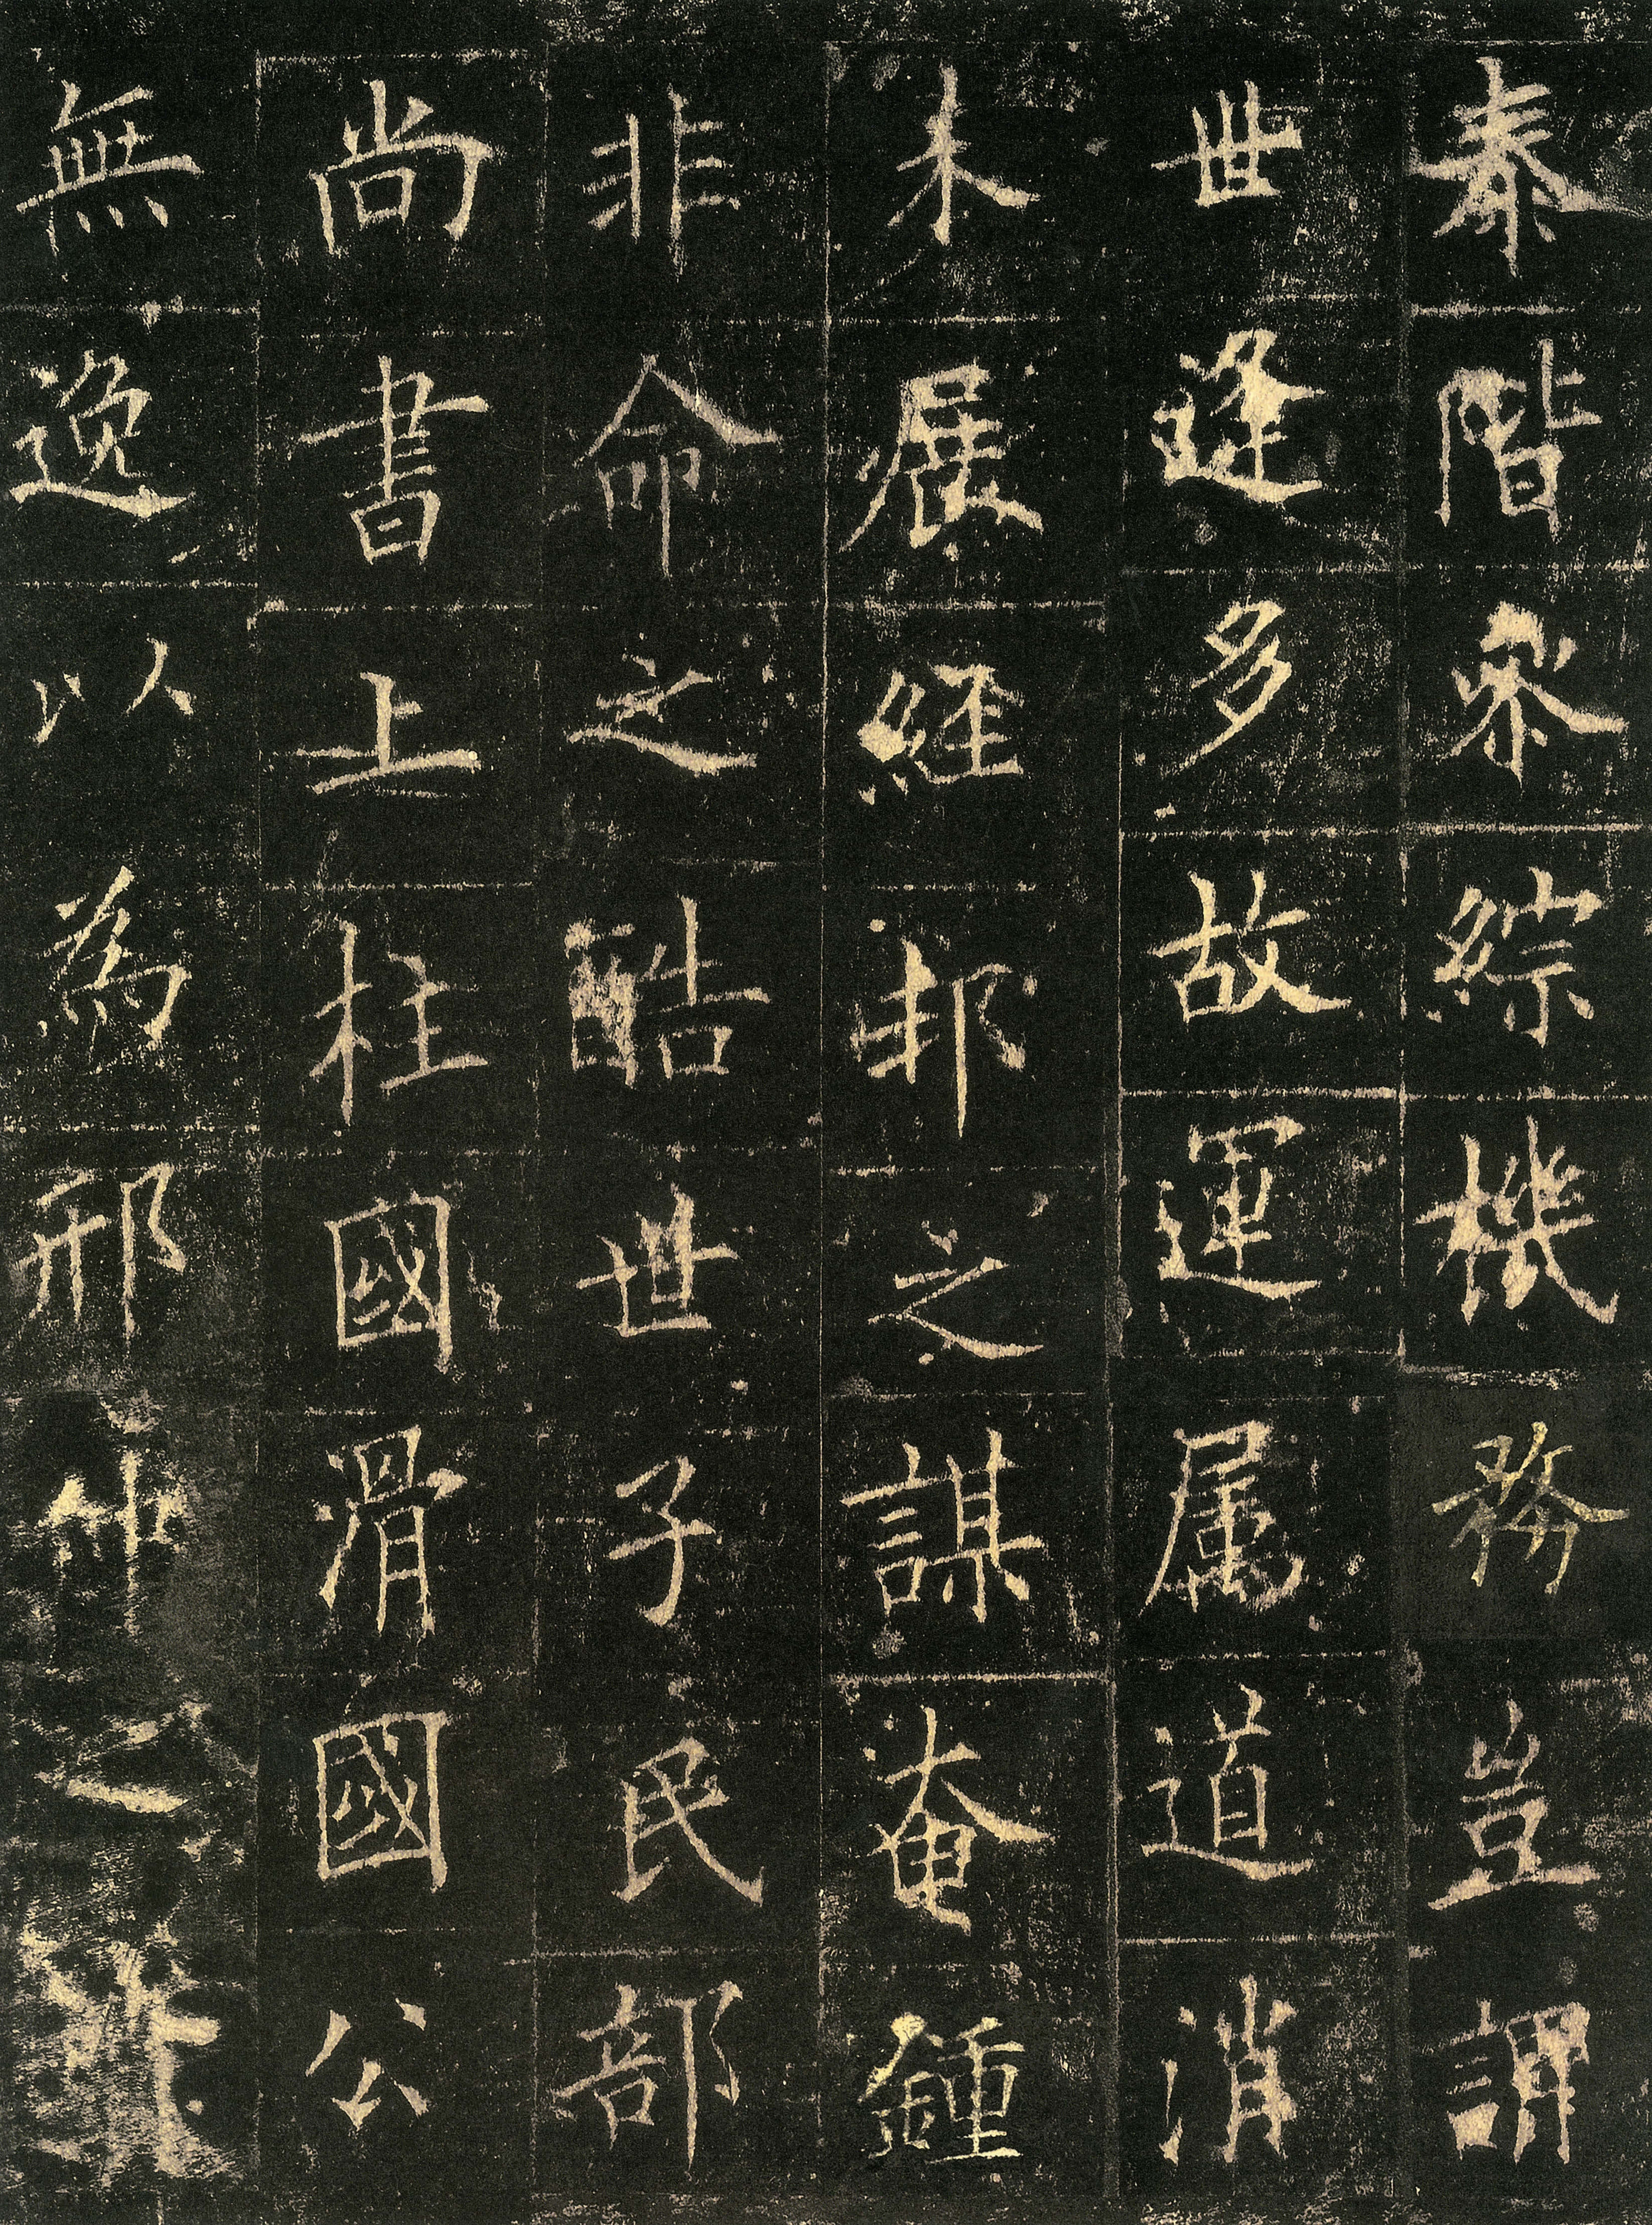 泰階叅綜機務豈謂
世逢多故運属道消
未展經邦之謀奄鍾
非命之酷世子民部
尚書上柱國滑國公
無逸以為邢